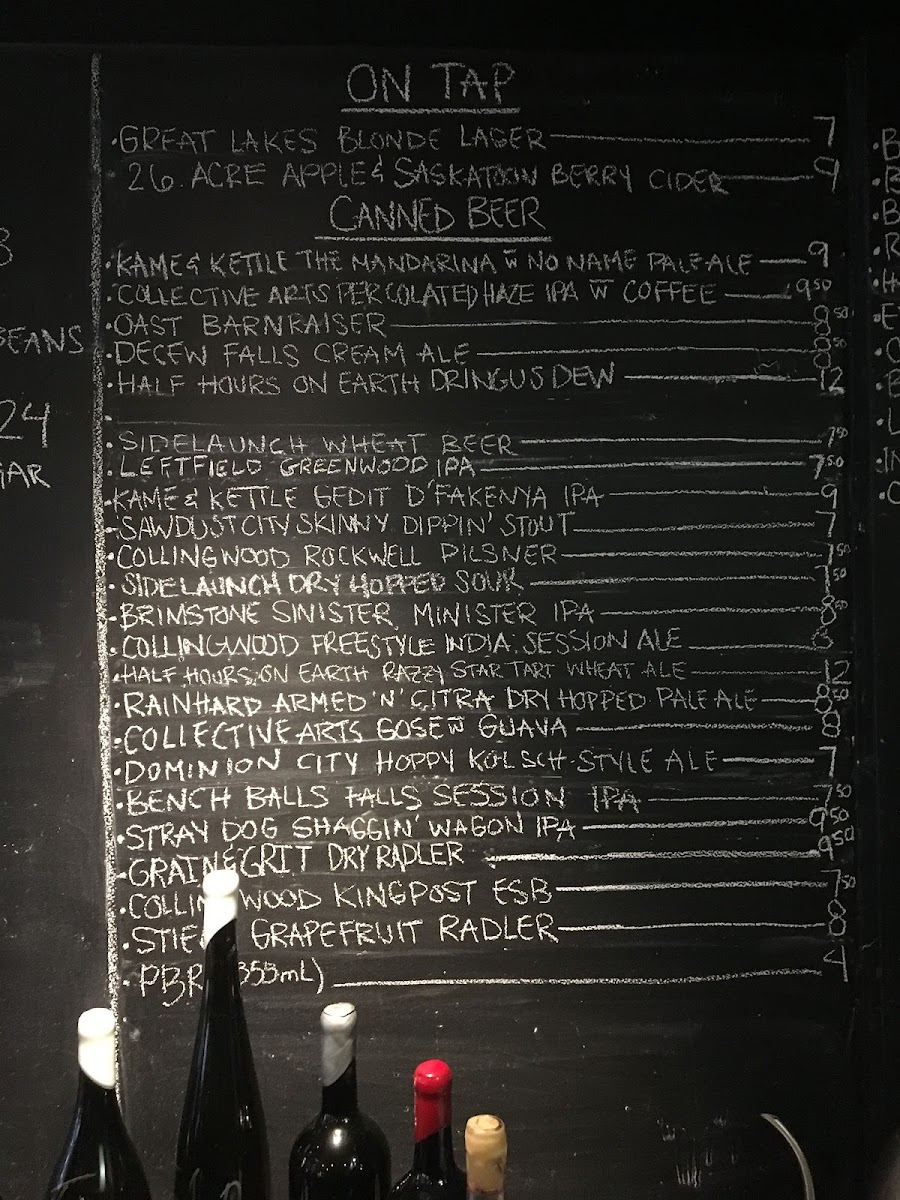 ON TAP
·GREAT LAKES BLONDE LAGER 7
26 ACRE APPLE & SASKATOON BERRY CIDER 9
CANNED BEER
·KAME & KETTLE THE MANDARINA w̅ NO NAME PALE ALE 9
·COLLECTIVE ARTS PERCOLATED HAZE IPA w̅ COFFEE 9⁵⁰
·OAST BARNRAISER 8⁵⁰
·DECEW FALLS CREAM ALE 8⁵⁰
·HALF HOURS ON EARTH DRINGUS DEW 12
·SIDELAUNCH WHEAT BEER 7⁵⁰
·LEFTFIELD GREENWOOD IPA 7⁵⁰
·KAME & KETTLE GEDIT D'FAKENYA IPA 9
·SAWDUST CITY SKINNY DIPPIN' STOUT 7
·COLLINGWOOD ROCKWELL PILSNER 7⁵⁰
·SIDELAUNCH DRY HOPPED SOUR 7⁵⁰
·BRIMSTONE SINISTER MINISTER IPA 8⁵⁰
·COLLINGWOOD FREESTYLE INDIA SESSION ALE 8
·HALF HOURS ON EARTH RAZZY STAR TART WHEAT ALE 12
·RAINHARD ARMED 'N' CITRA DRY HOPPED PALE ALE 8⁵⁰
·COLLECTIVE ARTS GOSE w̅ GUAVA 8
·DOMINION CITY HOPPY KÖLSCH-STYLE ALE 7
·BENCH BALLS FALLS SESSION IPA 7⁵⁰
·STRAY DOG SHAGGIN' WAGON IPA 9⁵⁰
·GRAIN & GRIT DRY RADLER 9⁵⁰
·COLLIN WOOD KINGPOST ESB 7⁵⁰
·STIE GRAPEFRUIT RADLER 8
·PBR 355mL) 4
BEANS
24